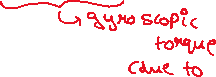 gyroscopic
torque
(due to